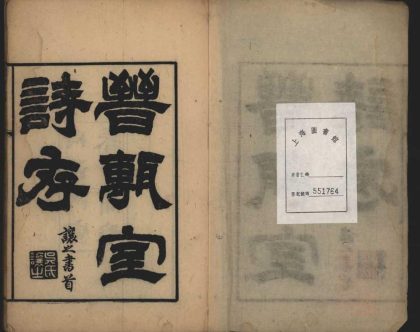 晉甎室
詩存
讓之書首
吳氏
讓之
上海圖書館
551764